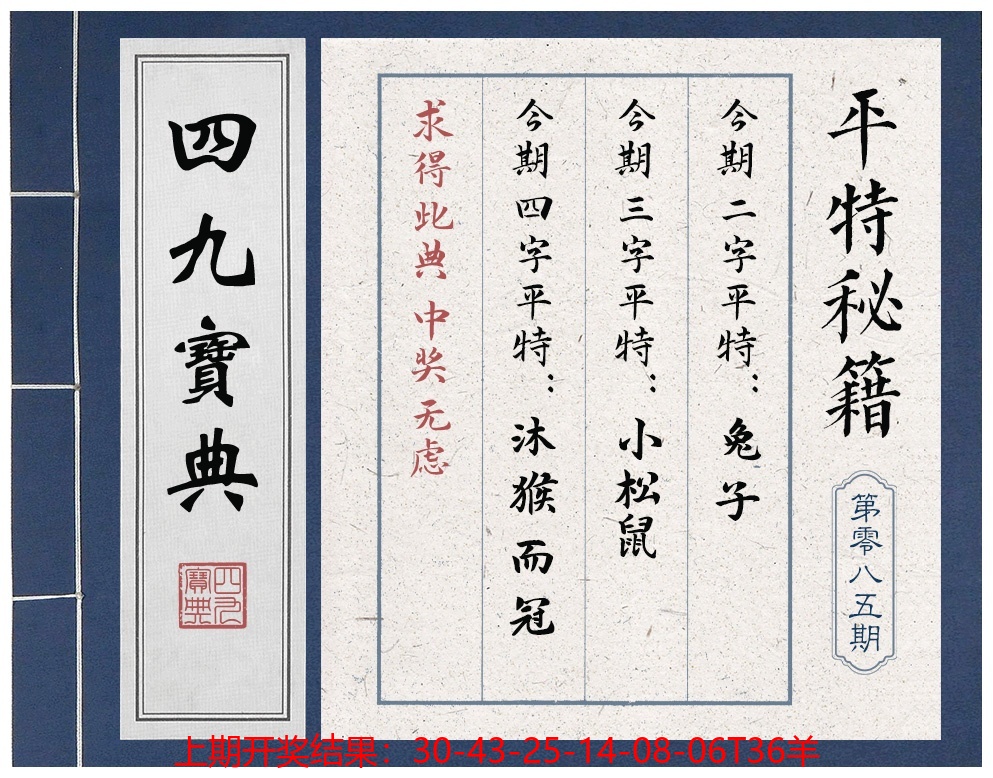 平特秘籍
第零八五期
今期二字平特：兔子
今期三字平特：小松鼠
今期四字平特：沐猴而冠
求得此典 中奖无虑
四九寶典
四九寶典
上期开奖结果：30-43-25-14-08-06T36羊